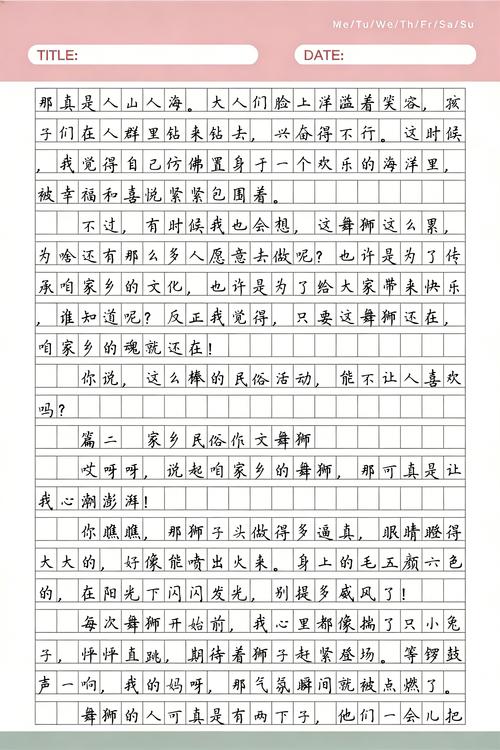 Me/Tu/We/Th/Fr/Sa/Su
TITLE:
DATE:
那真是人山人海。大人们脸上洋溢着笑容，孩
子们在人群里钻来钻去，兴奋得不行。这时候
，我觉得自己仿佛置身于一个欢乐的海洋里，
被幸福和喜悦紧紧包围着。
不过，有时候我也会想，这舞狮这么累，
为啥还有那么多人愿意去做呢？也许是为了传
承咱家乡的文化，也许是为了给大家带来快乐
，谁知道呢？反正我觉得，只要这舞狮还在，
咱家乡的魂就还在！
你说，这么棒的民俗活动，能不让人喜欢
吗？
篇二 家乡民俗作文舞狮
哎呀呀，说起咱家乡的舞狮，那可真是让
我心潮澎湃！
你瞧瞧，那狮子头做得多逼真，眼睛瞪得
大大的，好像能喷出火来。身上的毛五颜六色
的，在阳光下闪闪发光，别提多威风了！
每次舞狮开始前，我心里都像揣了只小兔
子，怦怦直跳，期待着狮子赶紧登场。等锣鼓
声一响，我的妈呀，那气氛瞬间就被点燃了。
舞狮的人可真是有两下子，他们一会儿把